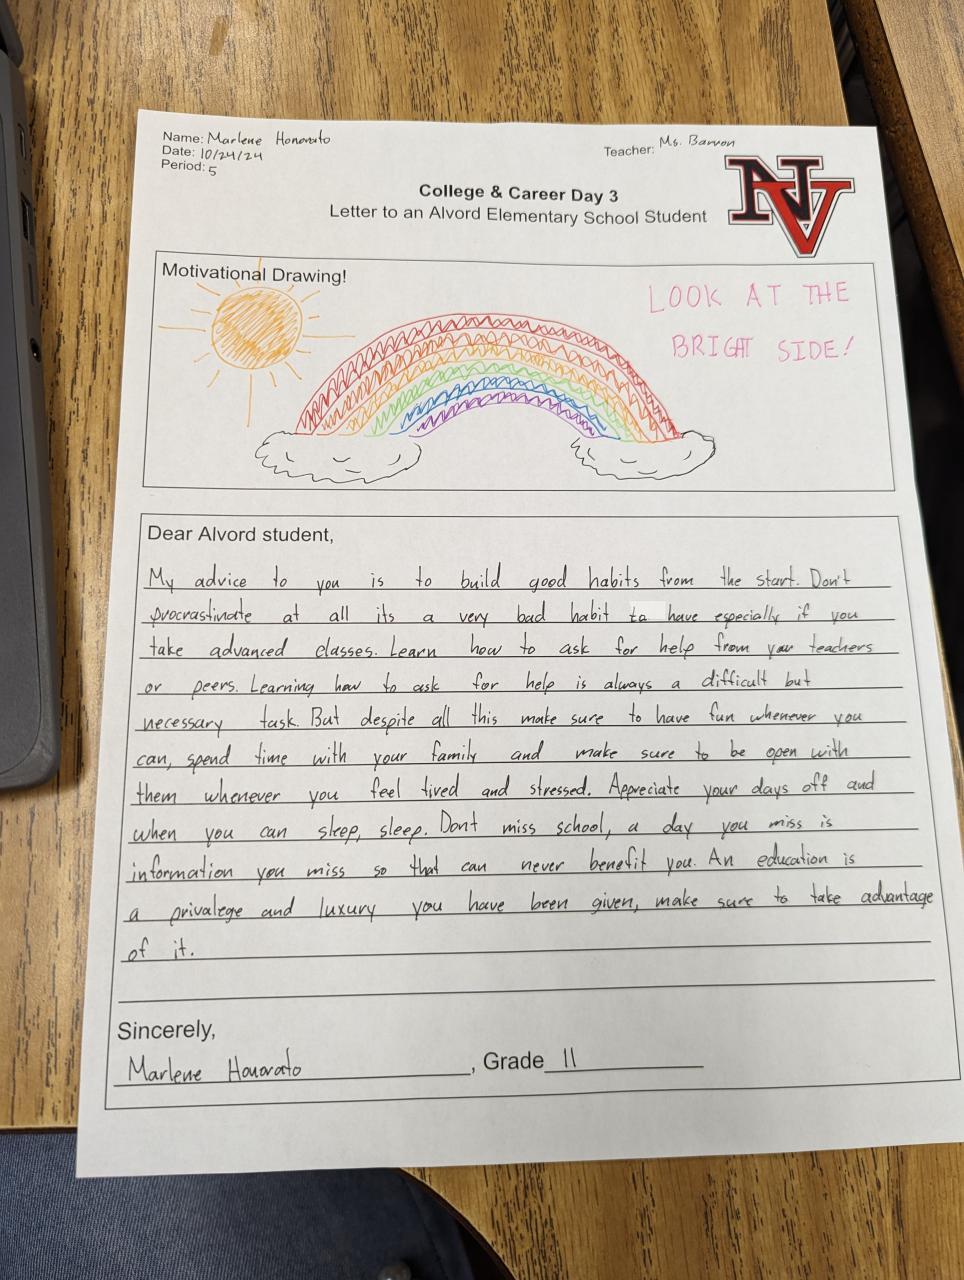 Name: Marlene Honorato
Date: 10/24/24
Period: 5
Teacher: Ms. Barron
NV
College & Career Day 3
Letter to an Alvord Elementary School Student
Motivational Drawing!
LOOK AT THE
BRIGHT SIDE!
Dear Alvord student,
My advice to you is to build good habits from the start. Don't
procrastinate at all its a very bad habit to have especially if you
take advanced classes. Learn how to ask for help from your teachers
or peers. Learning how to ask for help is always a difficult but
necessary task. But despite all this make sure to have fun whenever you
can, spend time with your family and make sure to be open with
them whenever you feel tired and stressed. Appreciate your days off and
when you can sleep, sleep. Dont miss school, a day you miss is
information you miss so that can never benefit you. An education is
a privalege and luxury you have been given, make sure to take advantage
of it.
Sincerely,
Marlene Honorato, Grade 11